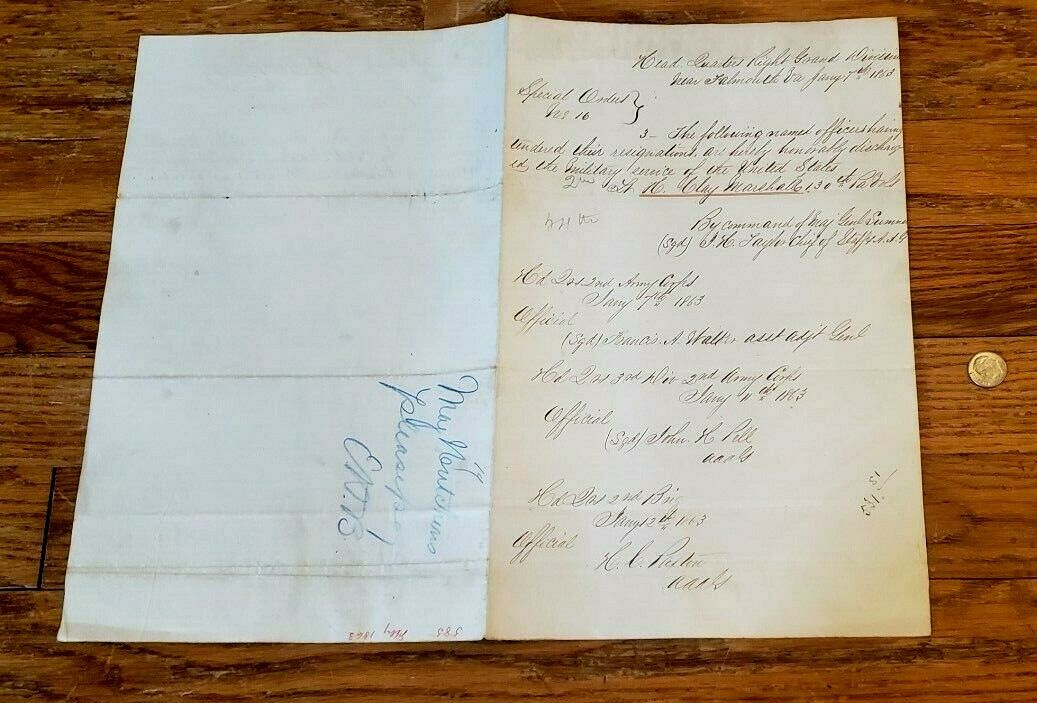 Head Quarters Right Grand Division
Near Falmouth Va Jany 7th 1863
Special Orders }
No 16
3 - The following named officers having
tendered their resignations are hereby honorably discharg
ed the military service of the United States
2nd Lt H. Clay Marshall 130th Pa Vols
By command of Maj Genl Sumner
(Sgd) J. H. Taylor Chief of Staff & A.A.G
Hd Qrs 2nd Army Corps
Jany 7th 1863
Official
(Sgd) Francis A. Walker asst adjt Genl
Hd Qrs 3rd Div 2nd Army Corps
Jany 11th 1863
Official
(Sgd) John H Pell
aaag
Hd Qrs 2nd Brig
Jany 12th 1863
Official
aaag
May
please pay
585
1863